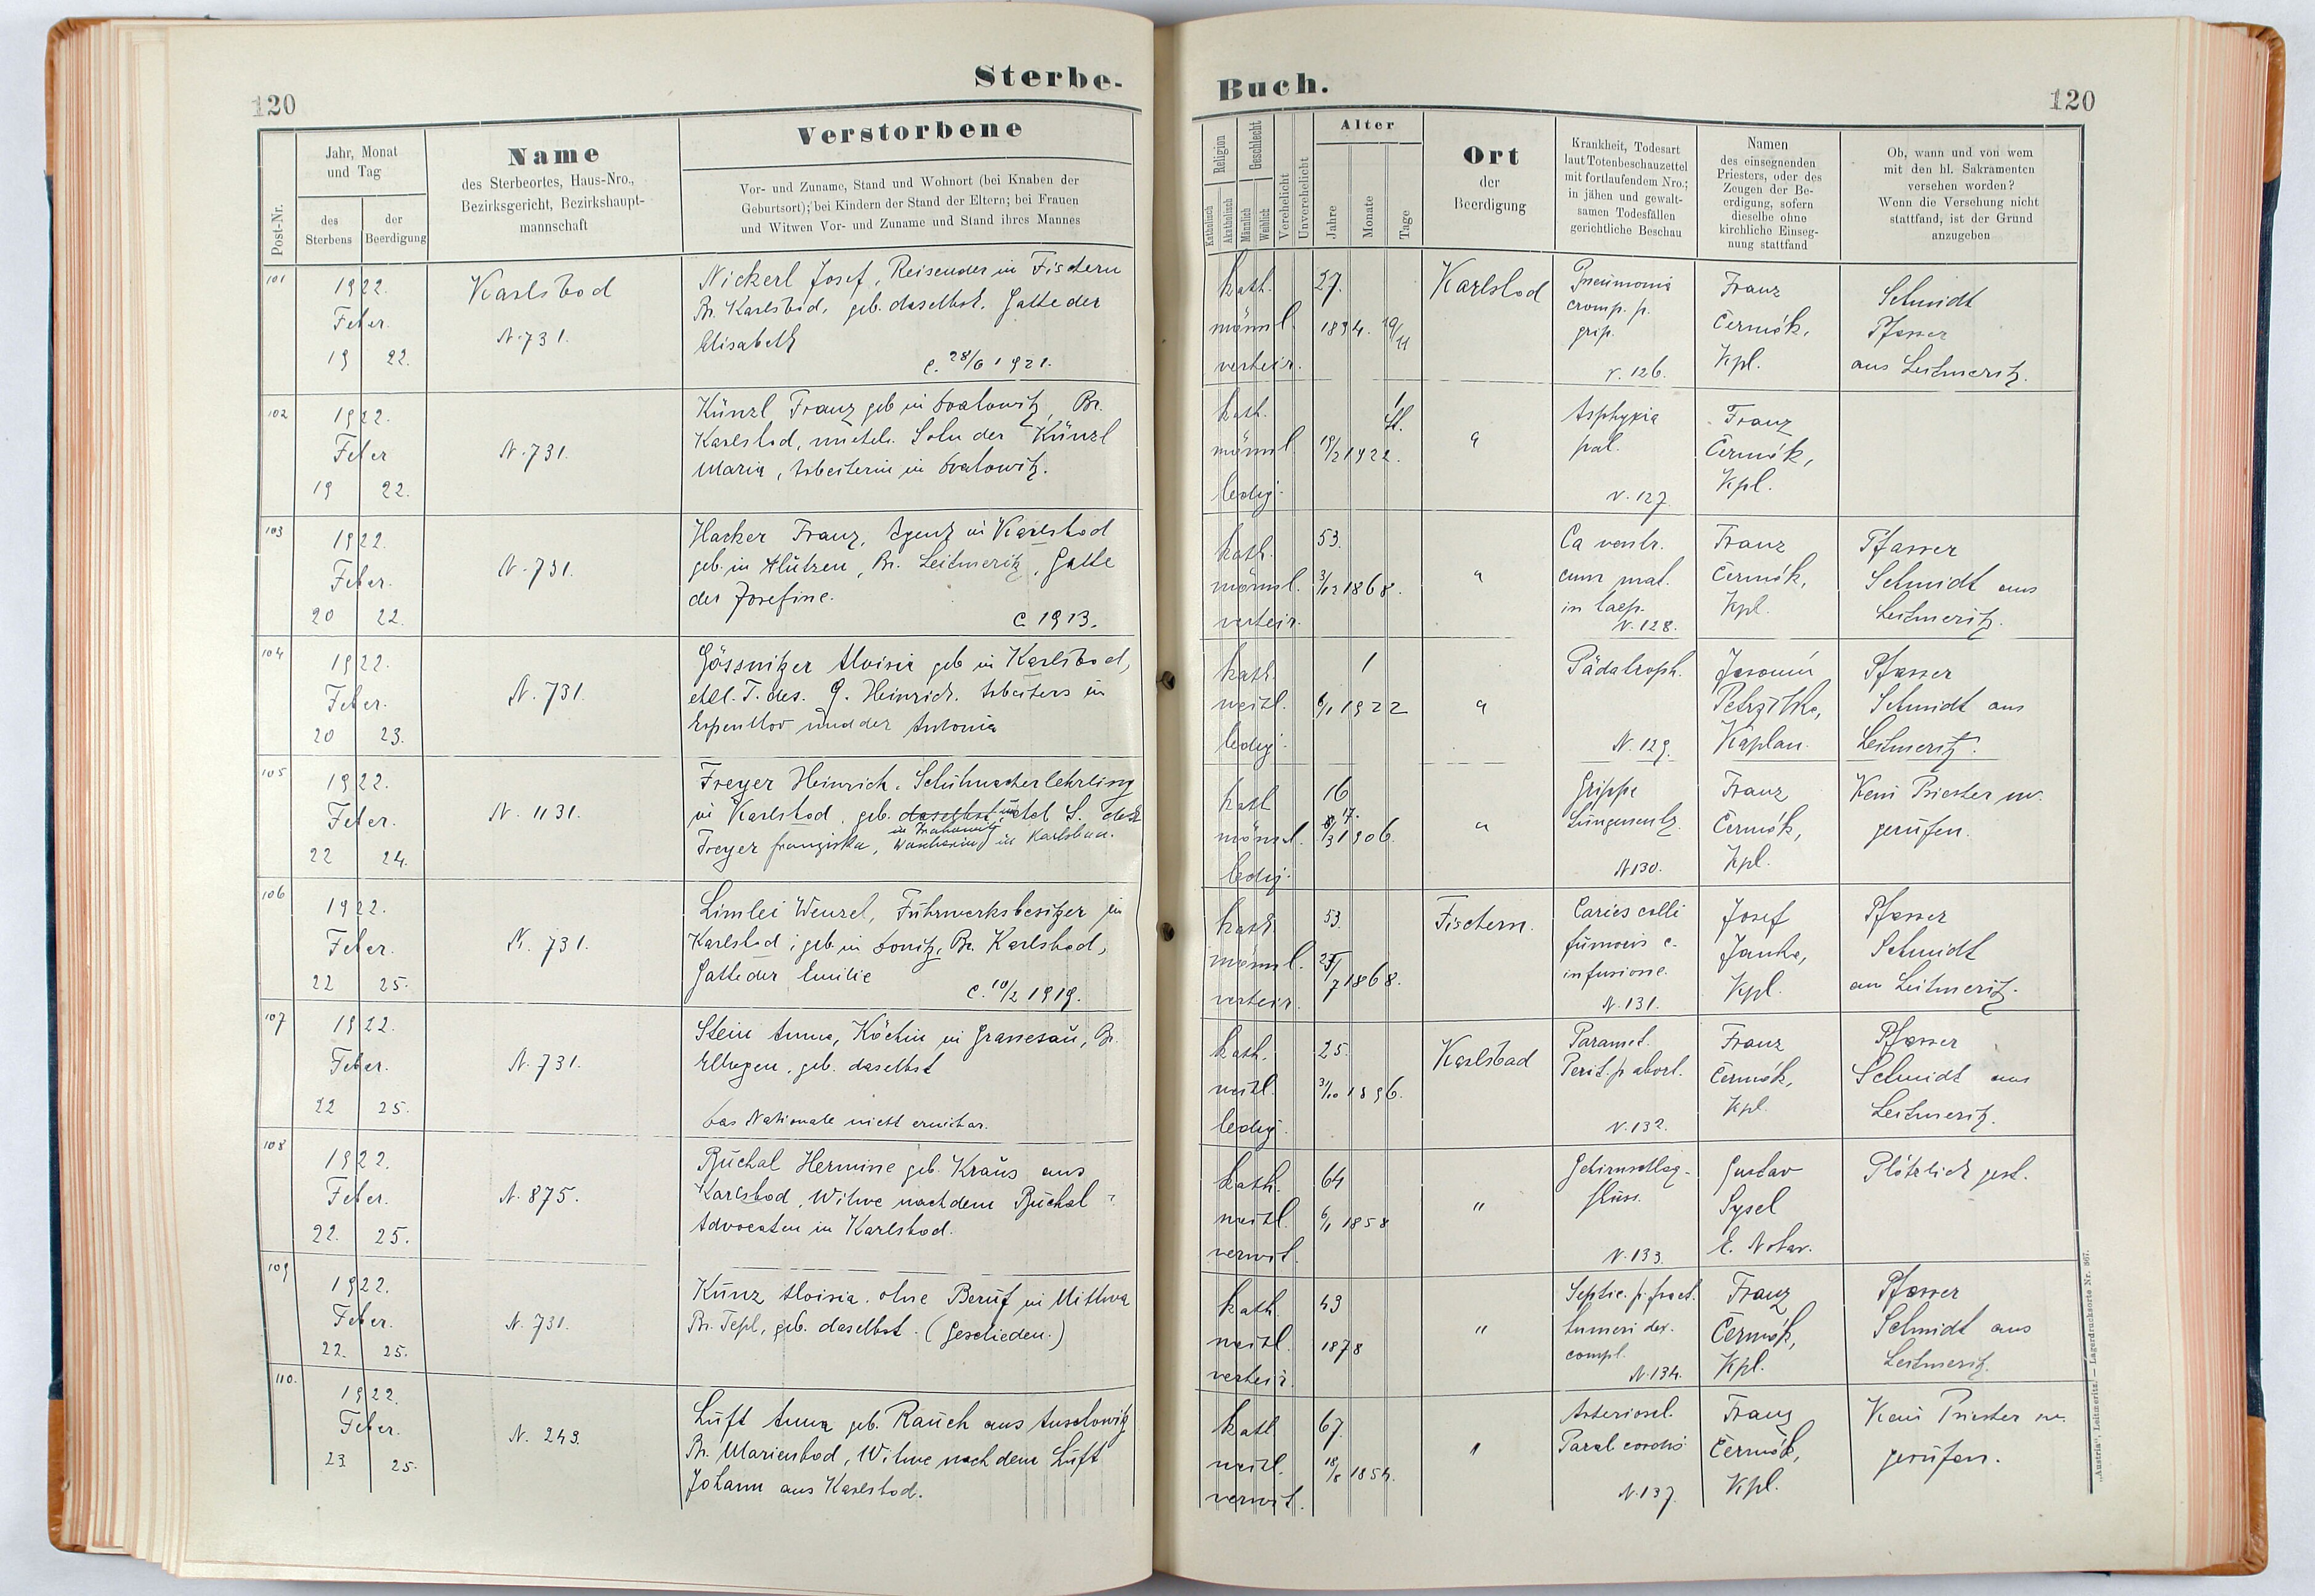 Sterbe-
120
Post-Nr.
Jahr, Monat
und Tag
des
Sterbens
der
Beerdigung
Name
des Sterbeortes, Haus-Nro.,
Bezirksgericht, Bezirkshaupt-
mannschaft
Verstorbene
Vor- und Zuname, Stand und Wohnort (bei Knaben der
Geburtsort); bei Kindern der Stand der Eltern; bei Frauen
und Witwen Vor- und Zuname und Stand ihres Mannes
101
1922.
Feber.
19 22.
Karlsbad
N. 731.
Nickerl Josef, Reisender in Fischern
Br. Karlsbad, geb. daselbst. Gatte der
Elisabeth
c. 28/6 1921.
102
1922.
Feber
19 22.
N. 731.
Künzl Franz geb in Dallowitz, Br.
Karlsbad, unehel. Sohn der Künzl
Maria, Arbeiterin in Dallowitz.
103
1922.
Feber.
20 22.
N. 731.
Hacker Franz, Agent in Karlsbad
geb. in, Br. Leitmeritz, Gatte
der Josefine.
c 1913.
104
1922.
Feber.
20 23.
N. 731.
Gössnitzer Aloisia geb in Karlsbad,
ehel. T. des. G. Heinrich. Arbeiters in
Espenthor und der Antonia
105
1922.
Feber.
22 24.
N. 1131.
Freyer Heinrich. Schuhmacherlehrling
in Karlsbad, geb. daselbst, unehel S. der
in
Freyer Franziska, in Karlsbad.
106
1922.
Feber.
22 25.
N. 731.
Limlei Wenzel, Fuhrwerksbesitzer in
Karlsbad, geb in Donitz, Br. Karlsbad,
Gatte der Emilie
c. 10/2 1919.
107
1922.
Feber.
22 25.
N. 731.
Stein Anna, Köchin in Grassesau, Br.
Ellbogen, geb. daselbst
Das Nationale nicht
108
1922.
Feber.
22. 25.
N. 875.
Buchal Hermine geb. Kraus aus
Karlsbad, Witwe nach dem Buchal
Advocaten in Karlsbad.
109
1922.
Feber.
22. 25.
N. 731.
Kunz Aloisia. ohne Beruf in
Br. Tepl, geb. daselbst. (Geschieden.)
110.
1922.
Feber.
23 25.
N. 249.
Luft Anna geb. Rauch aus Auschowitz
Br. Marienbad, Witwe nach dem Luft
Johann aus Karlsbad.
Buch.
120
Religion
Katholisch
Akatholisch
Geschlecht
Männlich
Weiblich
Verehelicht
Unverehelicht
Alter
Jahre
Monate
Tage
Ort
der
Beerdigung
Krankheit, Todesart
laut Totenbeschauzettel
mit fortlaufendem Nro.;
in jähen und gewalt-
samen Todesfällen
gerichtliche Beschau
Namen
des einsegnenden
Priesters, oder des
Zeugen der Be-
erdigung, sofern
dieselbe ohne
kirchliche Einseg-
nung stattfand
Ob, wann und von wem
mit den hl. Sakramenten
versehen worden?
Wenn die Versehung nicht
stattfand, ist der Grund
anzugeben
kath.
männl.
verheir.
27.
1894. 19/11
Karlsbad
Pneumonia
croup. p.
grip.
N. 126.
Franz
Čermák,
Kpl.
Schmidt
Pfarrer
aus Leitmeritz.
kath.
männl.
ledig.
1
St.
19/2 1922.
"
Asphyxia
pal.
N. 127
Franz
Čermák,
Kpl.
kath.
männl.
verheir.
53.
3/12 1868.
"
Ca ventr.
cum mat.
in
N. 128.
Franz
Čermák,
Kpl.
Pfarrer
Schmidt aus
Leitmeritz.
kath.
weibl.
ledig.
1
6/1 1922
"
Pädatroph.
N. 129.
Jaromír
Petrželka,
Kaplan.
Pfarrer
Schmidt aus
Leitmeritz.
kath
männl.
ledig.
16
8/3 1906. 17.
"
Grippe
Lungenentz.
N 130.
Franz
Čermák,
Kpl.
Kein Priester w.
gerufen.
kath
männl.
verheir.
53.
1868.
Fischern.
Caries colli
fumoris c.
infusione.
N. 131.
Josef
Janka,
Kpl.
Pfarrer
Schmidt
aus Leitmeritz.
kath.
weibl.
ledig.
25.
31/10 1896.
Karlsbad
Paramet.
Perit. p abort.
N. 132.
Franz
Čermák,
Kpl.
Pfarrer
Schmidt aus
Leitmeritz.
kath.
weibl.
verwit.
64
6/1 1858
"
Gehirnschlag-
fluss.
N. 133
Gustav
Sysel
E. Notar.
Plötzlich gest.
kath
weibl.
verheir.
43
1878
"
Septic. p. fract.
humeri dex.
compl.
N. 134.
Franz
Čermák,
Kpl.
Pfarrer
Schmidt aus
Leitmeritz.
kath
weibl.
verwit.
67.
18/8 1854.
"
Arterioscl.
Paral cordis
N. 137
Franz
Čermák,
Kpl.
Kein Priester w.
gerufen.
„Austria“, Leitmeritz. — Lagerdrucksorte Nr. 867.